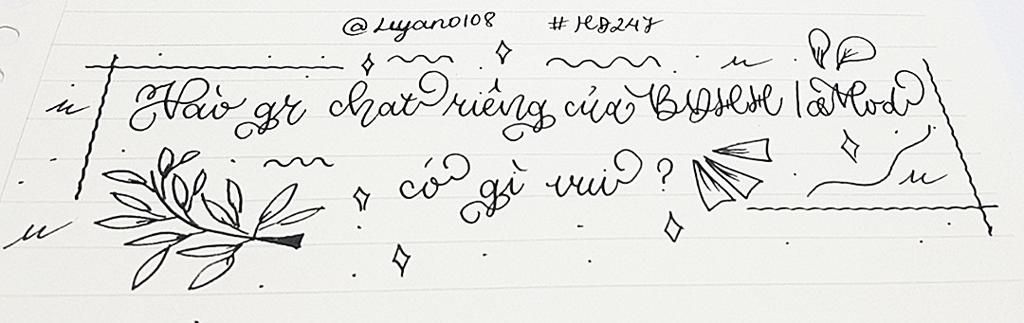 @Luyano108 #HD247
Vào gr chat riêng của BDHH là Mod
có gì vui ?